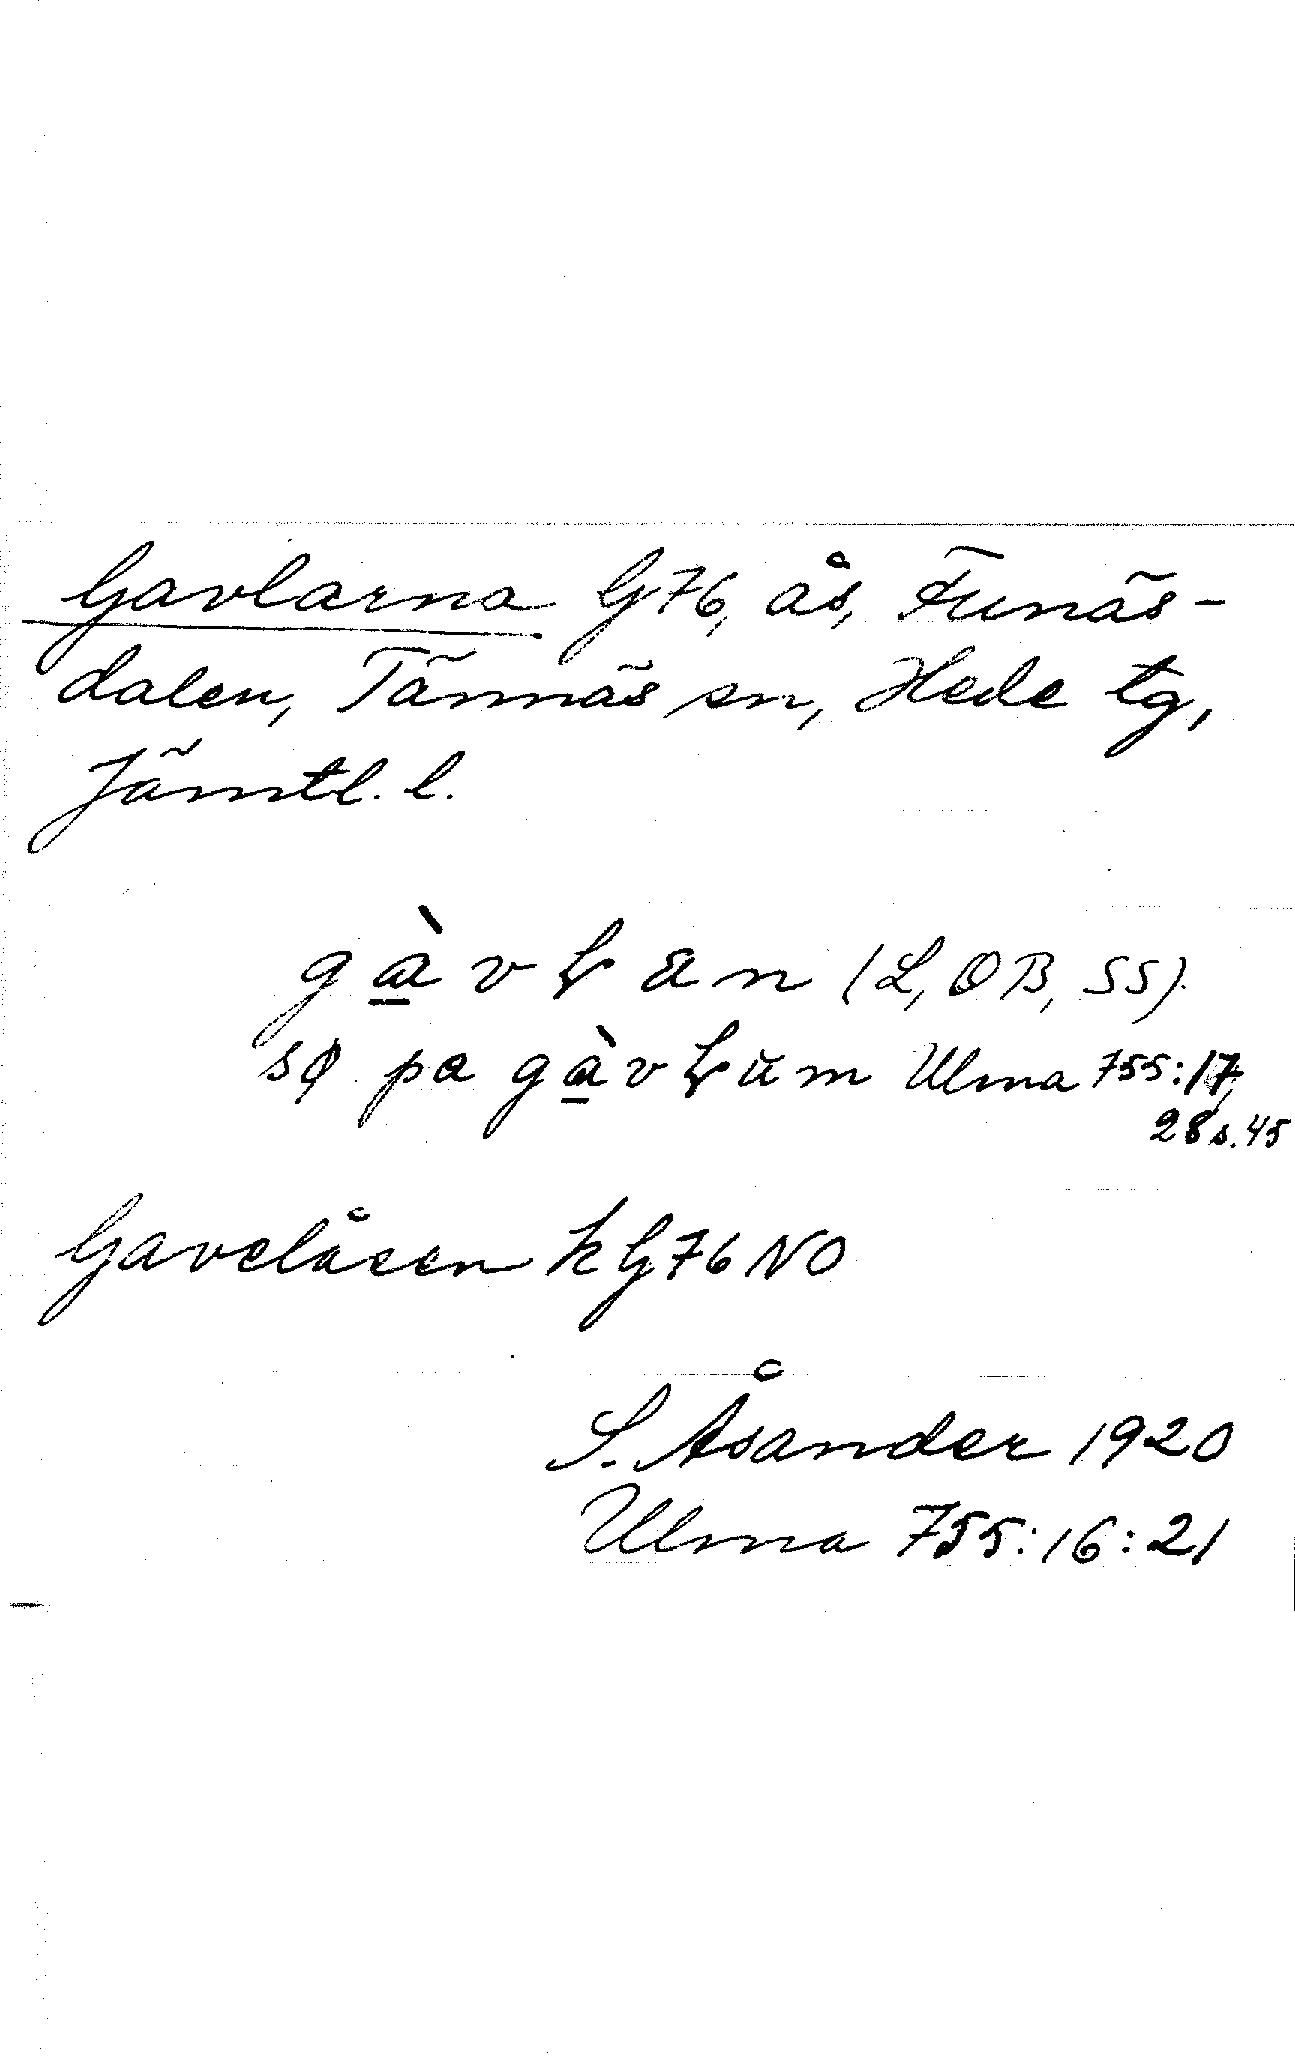 Gavlarna G76, ås, Funäs-
dalen, Tännäs sn, Hede tg,
Jämtl. l.
gàvꞎan (L, OB, SS).
sø pa gàvꞎum Ulma 755:17,
28 s. 45
Gavelåsen k G76 NO
S. Åsander 1920
Ulma 755:16:21